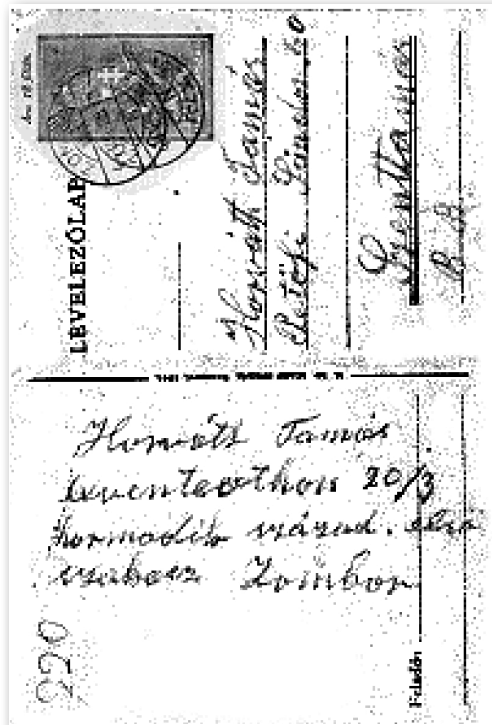 Ára 18 fillér
LEVELEZŐLAP
Horváth Tamás
Petőfi Sándor 60
Szenttamás
B. B.
Horváth Tamás
Leventeotthon 20/3
harmadik század. első
szakasz Zombor
Feladó:
220